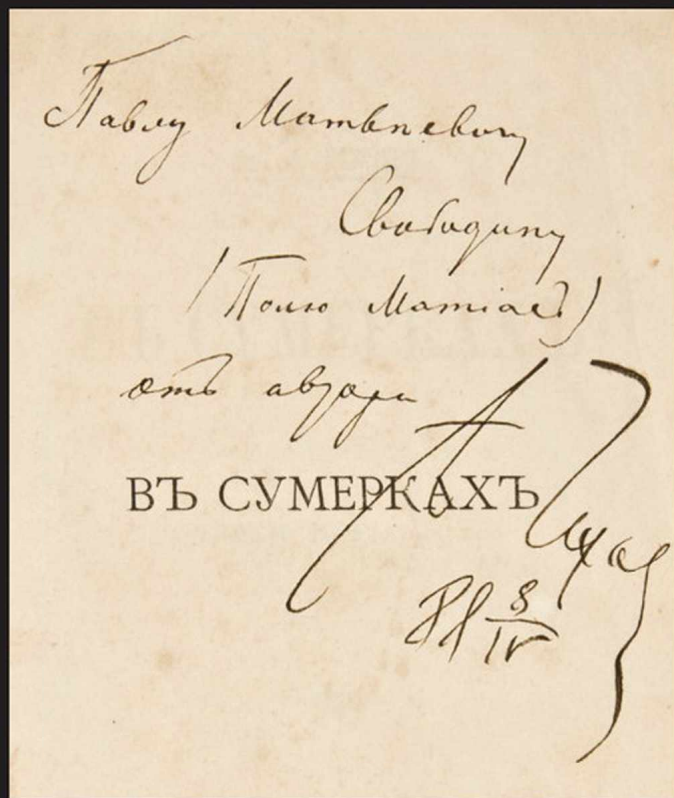 Павлу Матвѣевичу
Свободину
(Полю Матіасъ)
отъ автора
ВЪ СУМЕРКАХЪ
А Чехов
89 8/IV